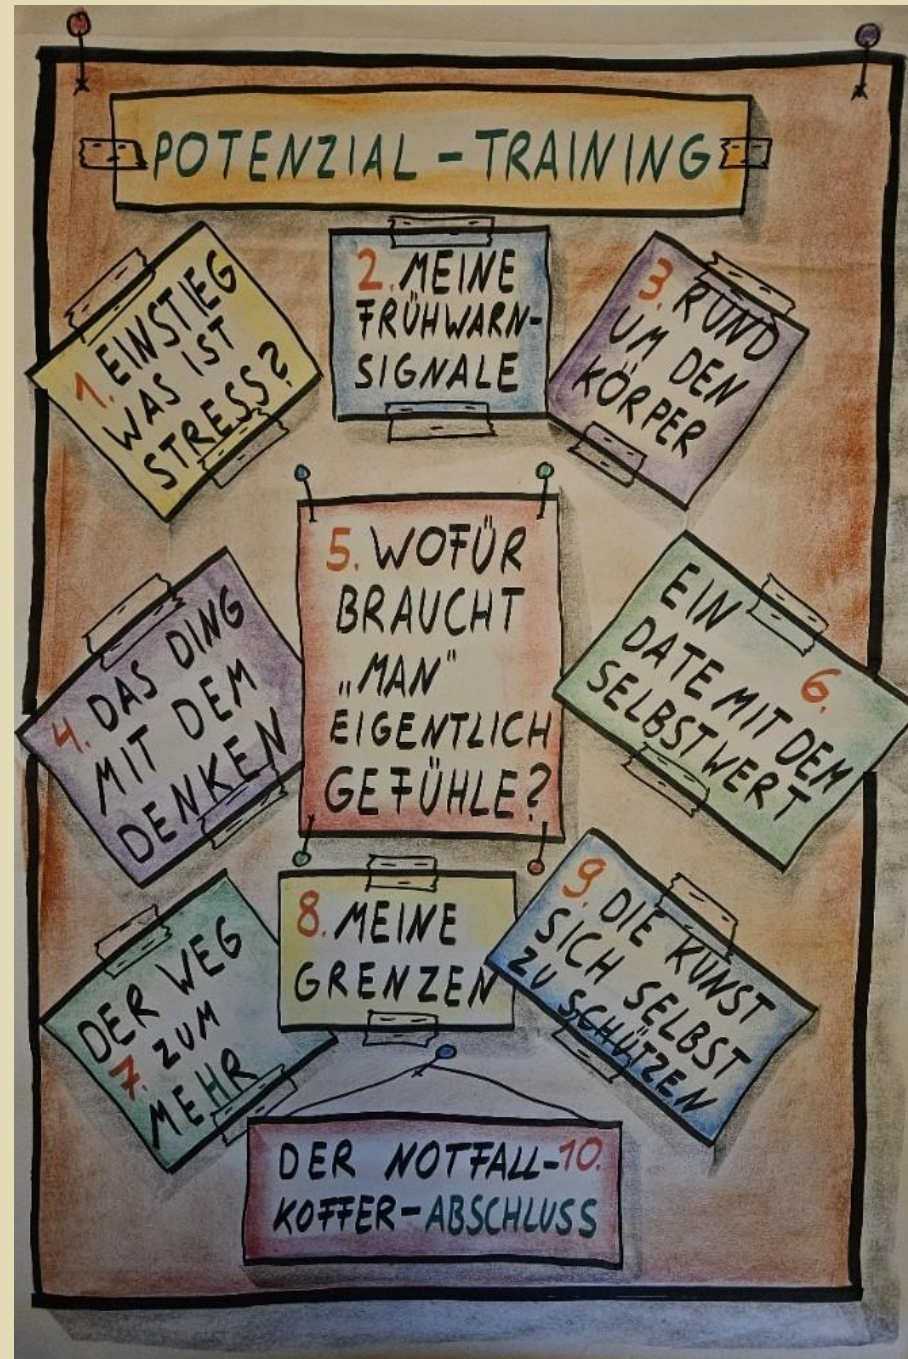 POTENZIAL-TRAINING
1. EINSTIEG
WAS IST
STRESS?
2. MEINE
FRÜHWARN-
SIGNALE
3. RUND
UM DEN
KÖRPER
4. DAS DING
MIT DEM
DENKEN
5. WOFÜR
BRAUCHT
„MAN“
EIGENTLICH
GEFÜHLE?
6. EIN
DATE MIT DEM
SELBSTWERT
DER WEG
7. ZUM
MEHR
8. MEINE
GRENZEN
9. DIE KUNST
SICH SELBST
ZU SCHÜTZEN
DER NOTFALL-10.
KOFFER-ABSCHLUSS